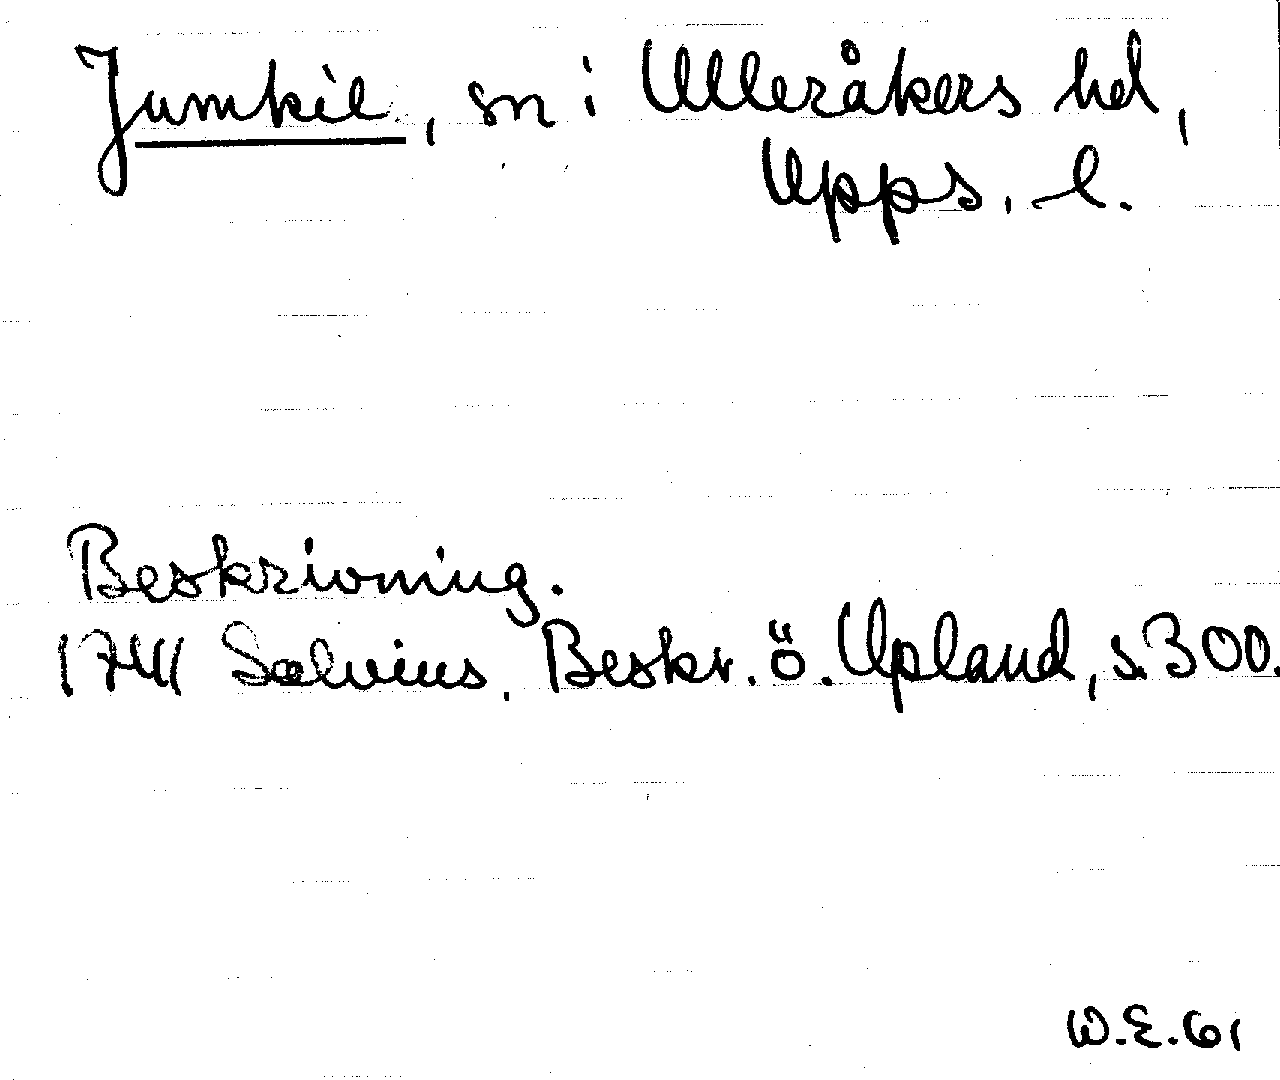 Jumkil, sn i Ulleråkers hd,
Upps. l.
Beskrivning.
1741 Salvius. Beskr. ö. Upland, s. 300.
W.E. 61